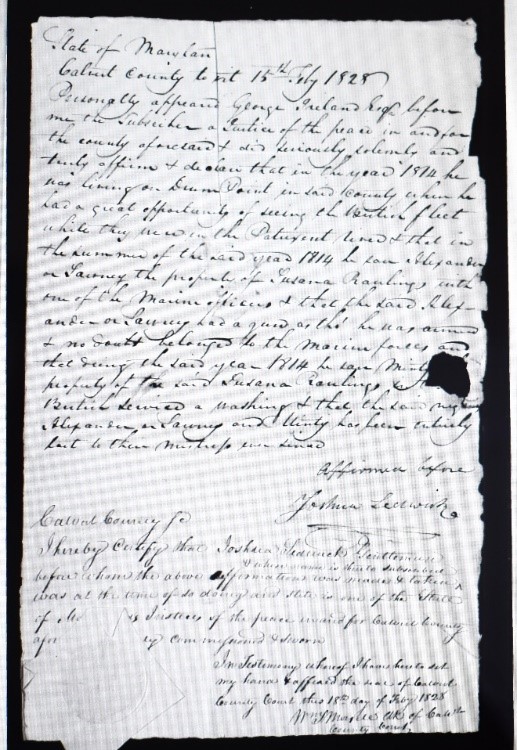 State of Marylan
Calvert County to wit 15th Feby 1828
Personally appeard George Ireland Esqr before
me the Subscriber a Justice of the peace in and for
the county aforesaid & did seriously solemly and
truly affirm & declare that in the year 1814 he
was living on Drum Point in said County when he
had a great opportunity of seeing the British fleet
while they were in the Patuxent River & that in
the summer of the said year 1814 he saw Alexander
or Sawney the property of Susana Rawlings with
one of the Marine officers & that the said Alex-
ander or Sawney had a gun as tho he was armed
& no doubt belonged to the Marine forces and
that during the said year 1814 he saw Minty
property of the said Susana Rawlings
British Service a washing & that the said negroes
Alexander or Sawney and Minty has been entirely
lost to their mistress ever since
Affirmed before
Joshua Sedwick
Calvert County Sc
I hereby Certify that Joshua Sedwick Gentleman
& whose name is thereto subscribed
before whom the above affirmation was made & taken
was at the time of so doing and still is one of the State
of Justices of the peace in and for Calvert County
commissioned & sworn
In Testimony whereof I have hereto set
my hand & affixed the seal of Calvert
County Court this 18th day of Feby 1828
Wm S Clk of Calvert
County Court